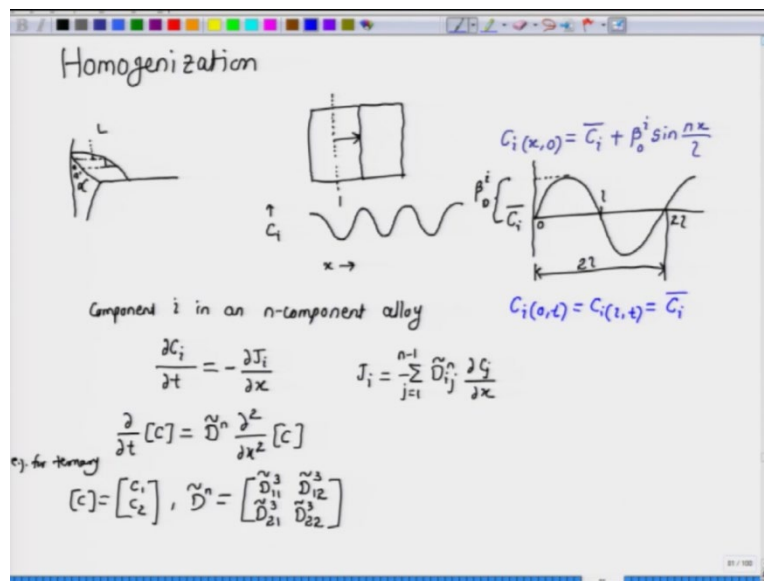 Homogenization
L
α
C_i(x,0) = C̅_i + β_0^i sin nx/l
β_0^i
C̅_i
0
l
2l
2l
1
↑
C_i
x →
Component i in an n-component alloy
C_i(0,t) = C_i(l,t) = C̅_i
∂C_i/∂t = -∂J_i/∂x
J_i = -Σ_{j=1}^{n-1} D̃_ij^n ∂C_j/∂x
∂/∂t [C] = D̃^n ∂²/∂x² [C]
e.g. for ternary
[C] = [C_1 C_2], D̃^n = [D̃_11^3 D̃_12^3 D̃_21^3 D̃_22^3]
81 / 100